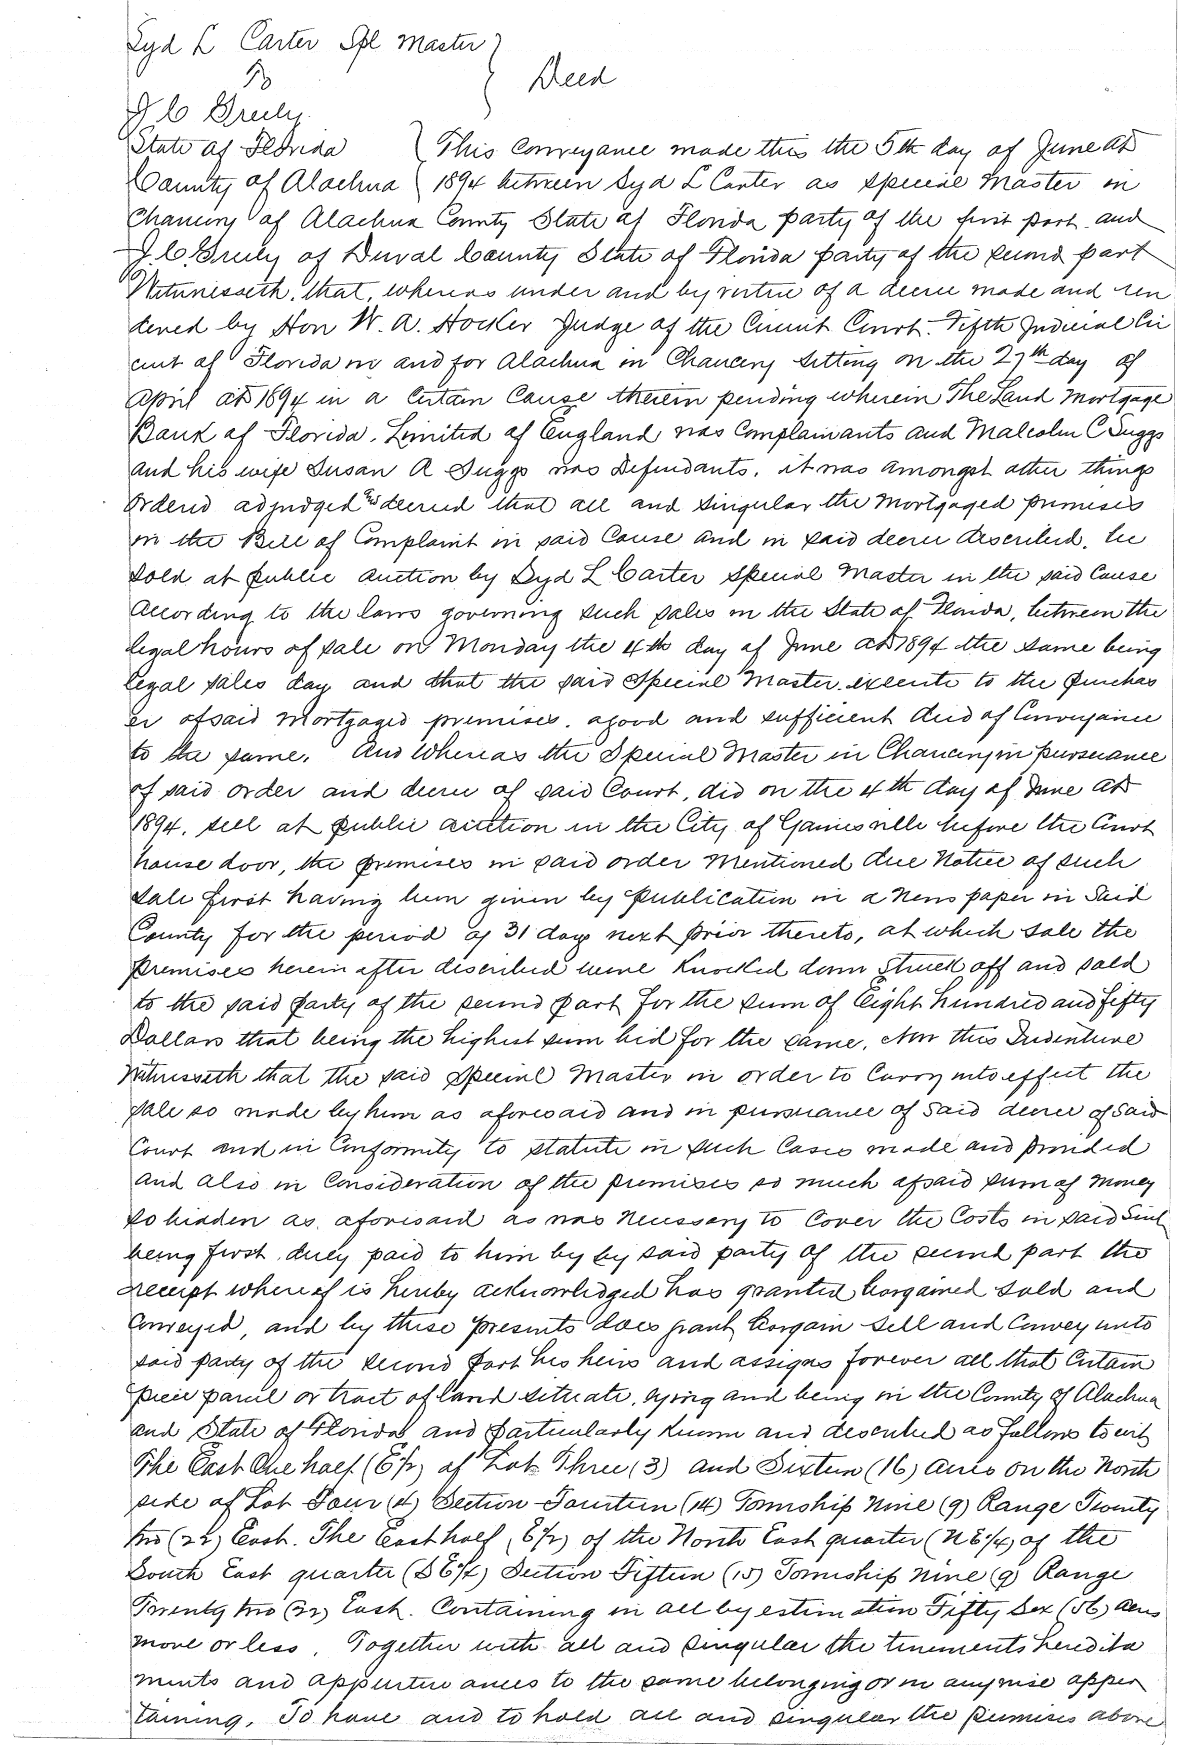 Syd L Carter Spl Master
To
Deed
J. C. Greely
State of Florida This conveyance made this the 5th day of June AD
County of Alachua 1894 between Syd L Carter as special Master in
Chancery of Alachua County State of Florida party of the first part and
J. C. Greely of Duval County State of Florida party of the second part
Witnesseth, that, whereas under and by virtue of a decree made and ren
dered by Hon W. A. Hocker Judge of the Circuit Court. Fifth Judicial Cir
cuit of Florida in and for Alachua in Chancery sitting on the 27th day of
April AD 1894 in a Certain Cause therein pending wherein The Land Mortgage
Bank of Florida, Limited of England was Complainants and Malcolm C Suggs
and his wife Susan A Suggs was Defendants, it was amongst other things
Ordered adjudged and decreed that all and singular the Mortgaged premises
in the Bill of Complaint in said Cause and in said decree described, be
sold at public auction by Syd L Carter special Master in the said Cause
According to the laws governing such sales in the State of Florida, between the
legal hours of sale on Monday the 4th day of June AD 1894 the same being
legal sales day and that the said Special Master execute to the purchas
er of said Mortgaged premises, a good and sufficient deed of Conveyance
to the same. And Whereas the Special Master in Chancery in pursuance
of said order and decree of said Court, did on the 4th day of June AD
1894, sell at public auction in the City of Gainesville before the Court
house door, the premises in said order Mentioned due Notice of such
sale first having been given by publication in a News paper in Said
County for the period of 31 days next prior thereto, at which sale the
premises herein after described were Knocked down Struck off and sold
to the said party of the second part for the sum of Eight hundred and fifty
Dollars that being the highest sum bid for the same. Now this Indenture
Witnesseth that the said Special Master in order to Carry into effect the
sale so made by him as aforesaid and in pursuance of said decree of said
Court and in Conformity to statute in such Cases made and provided
and also in Consideration of the premises so much of said sum of Money
so bidden as aforesaid as was Necessary to Cover the Costs in said Suit
being first duly paid to him by by said party of the second part the
receipt whereof is hereby acknowledged has granted bargained sold and
Conveyed, and by these presents does grant bargain sell and Convey unto
said party of the second part his heirs and assigns forever all that Certain
piece parcel or tract of land situate, lying and being in the County of Alachua
and State of Florida and particularly known and described as follows to wit
The East One half (E½) of Lot Three (3) and Sixteen (16) acres on the North
side of Lot Four (4) Section Fourteen (14) Township Nine (9) Range Twenty
two (22) East. The East half (E½) of the North East quarter (NE¼) of the
South East quarter (SE¼) Section Fifteen (15) Township Nine (9) Range
Twenty two (22) East. Containing in all by estimation Fifty Sex (56) acres
more or less. Together with all and singular the tenements heredita
ments and appurtenances to the same belonging or in anywise apper
taining. To have and to hold all and singular the premises above